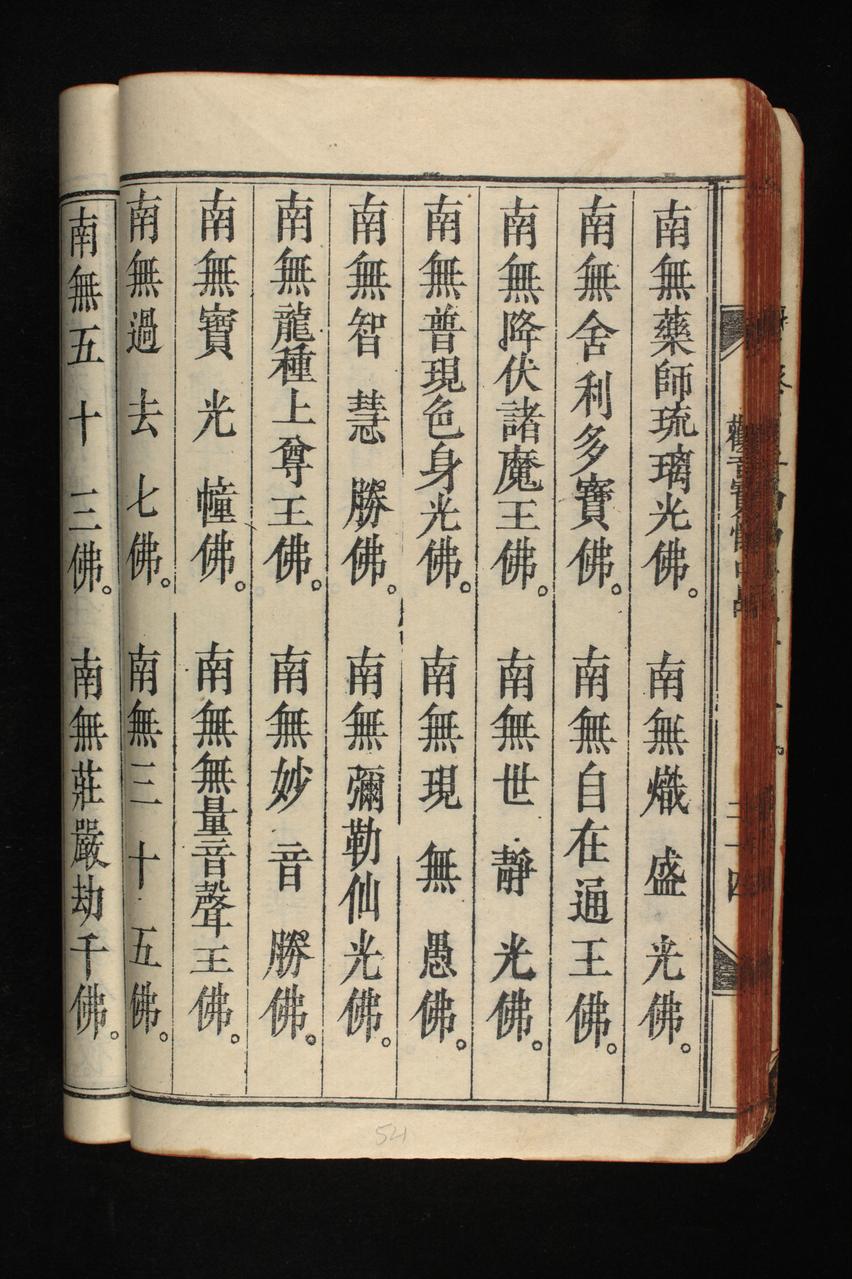 南無藥師琉璃光佛。 南無熾盛光佛。
南無舍利多寶佛。 南無自在通王佛。
南無降伏諸魔王佛。 南無世靜光佛。
南無普現色身光佛。 南無現無愚佛。
南無智慧勝佛。 南無彌勒仙光佛。
南無龍種上尊王佛。 南無妙音勝佛。
南無寶光幢佛。 南無無量音聲王佛。
南無過去七佛。 南無三十五佛。
南無五十三佛。 南無莊嚴劫千佛。
三十四
54